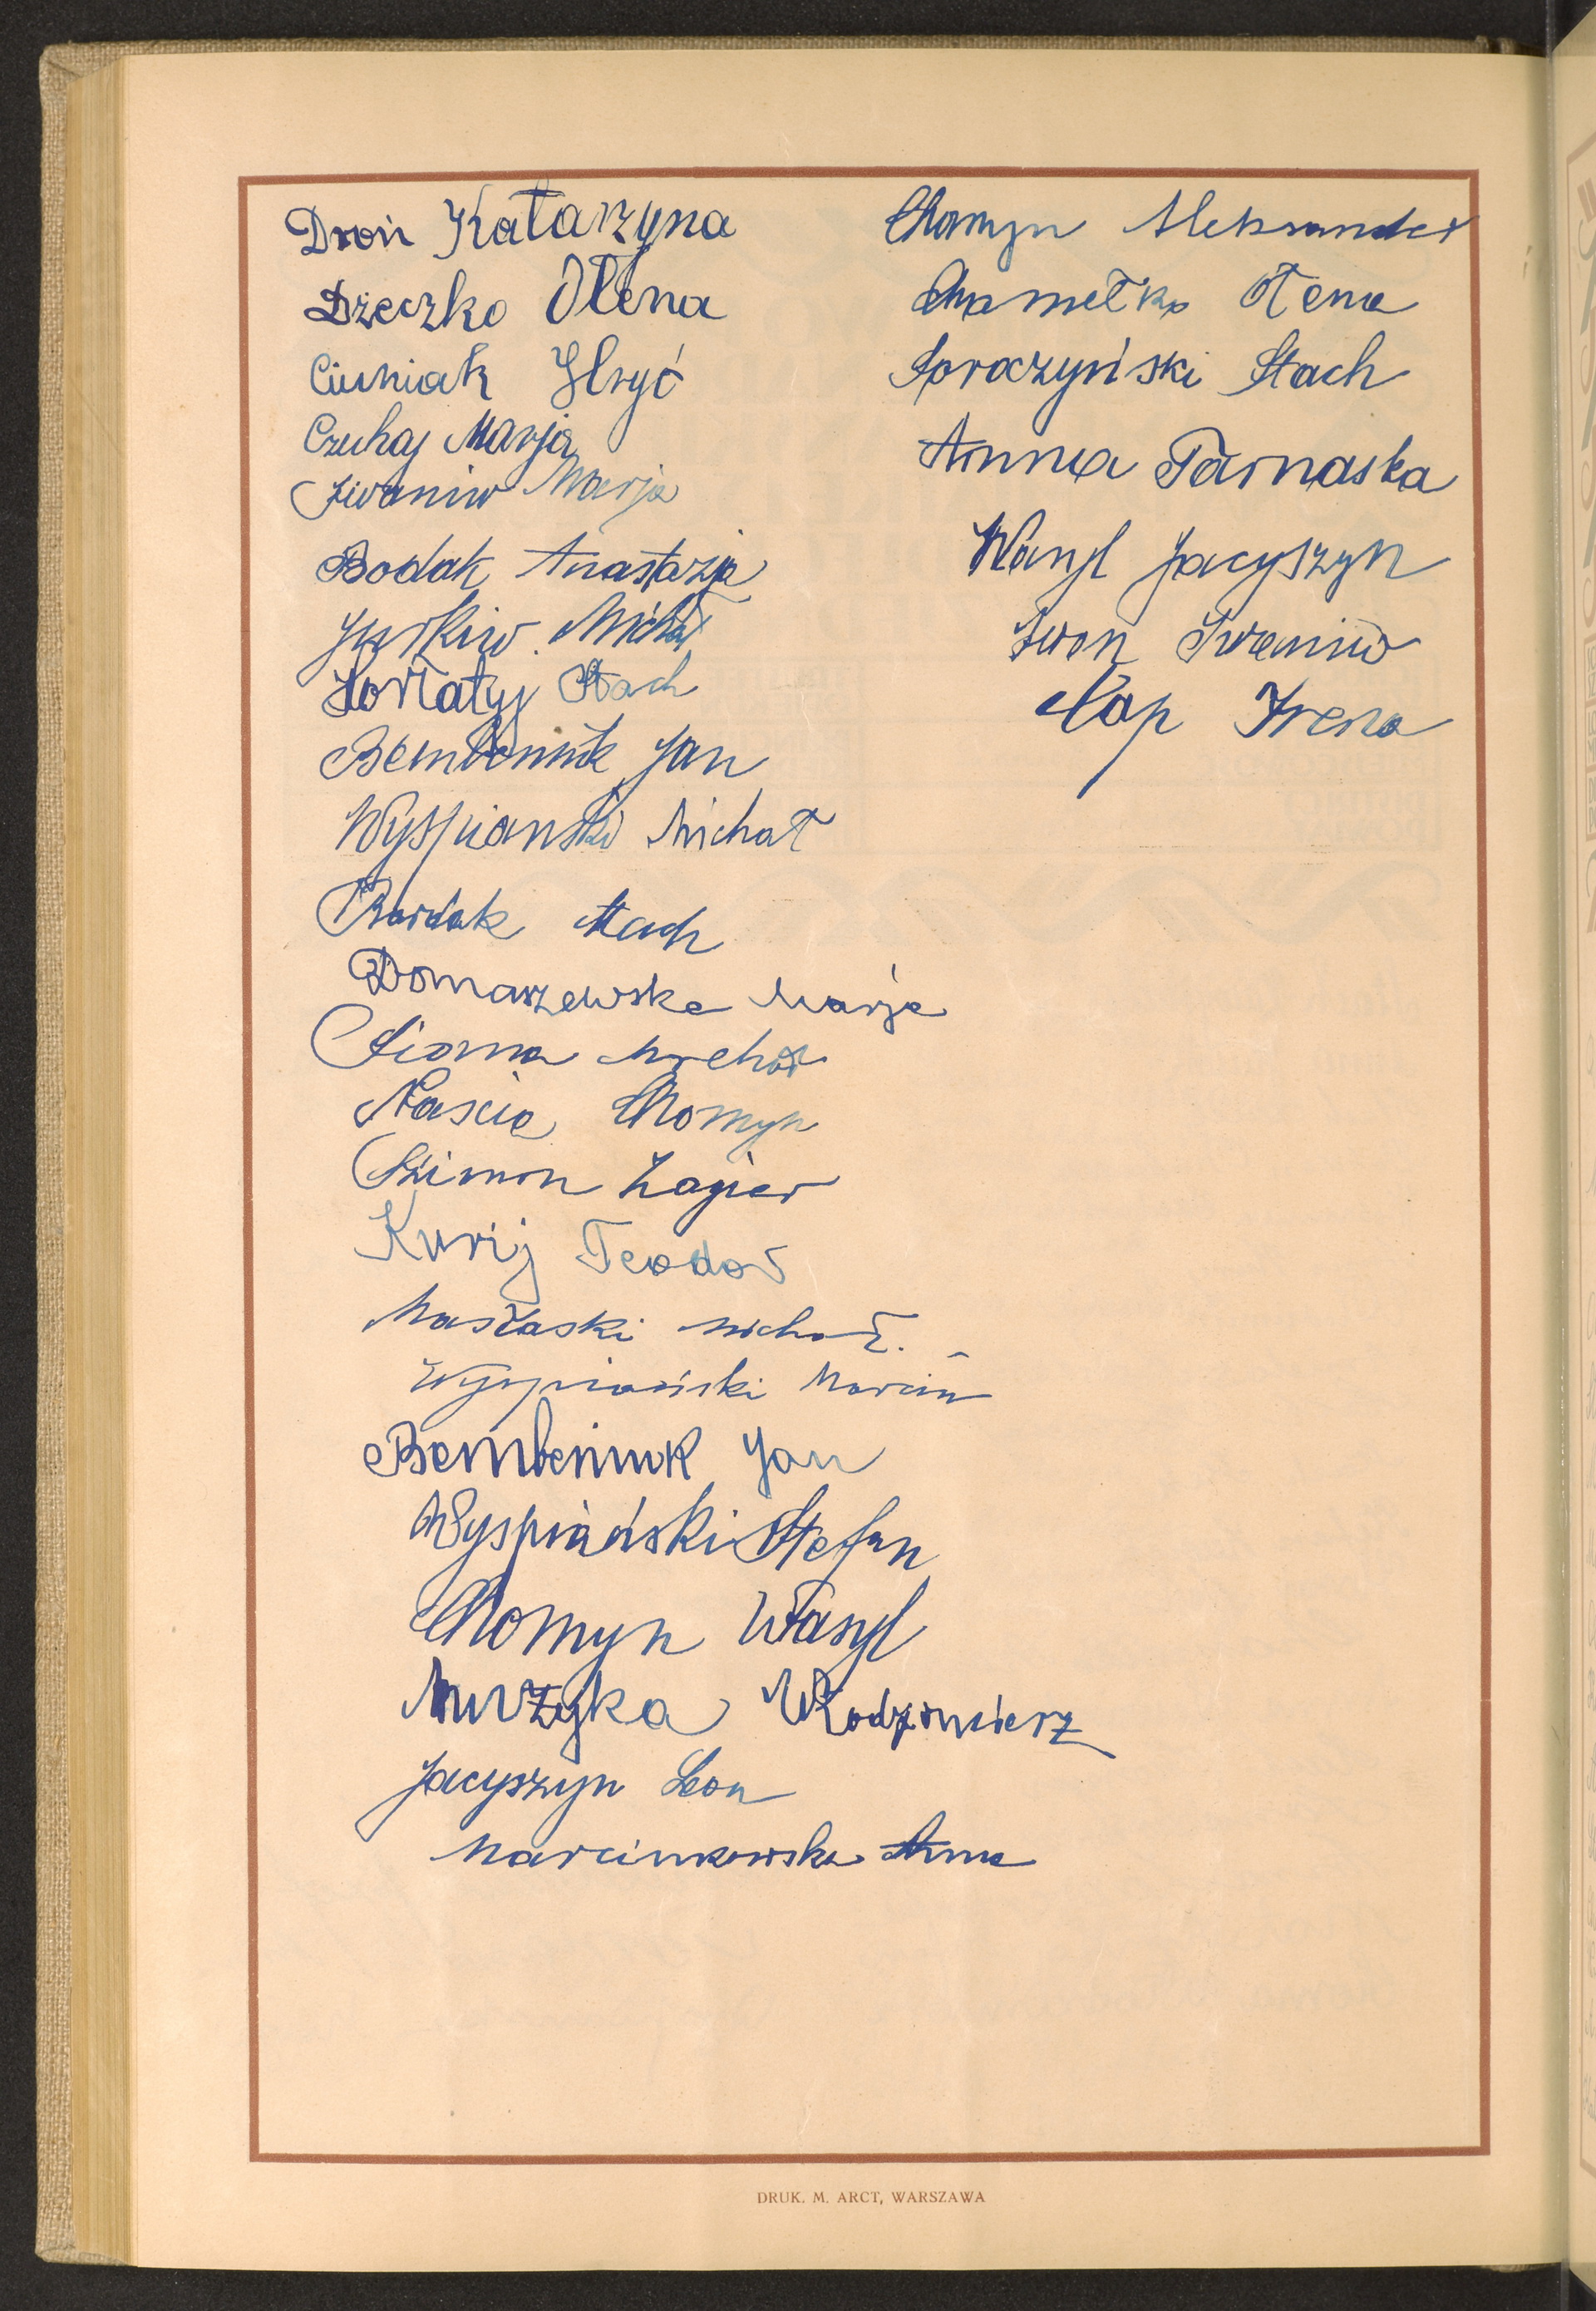 Droń Katarzyna
Dżeczko Olena
Ciuniak Hryć
Czuhaj Marja
Iwaniw Marja
Bodak Anastazja
Jurkiw Michał
Hortatyj Stach
Bembeniuk Jan
Wyspianski Michał
Bardak Stach
Domaszewska Marja
Sioma Michał
Nascia Chomyn
Szimon Łagier
Kurij Teodor
Masłaski Michał.
Wyspiański Marcin
Bembeniuk Jan
Wyspiański Stefan
Chomyn Wasyl
Muzyka Włodzimierz
Jacyszyn Leon
Marcinkowska Anna
Chomyn Aleksander
Chamełko Ołena
Soroczyński Stach
Anna Tarnaska
Wasyl Jacyszyn
Iwan Iwaniw
Cap Irena
DRUK. M. ARCT, WARSZAWA